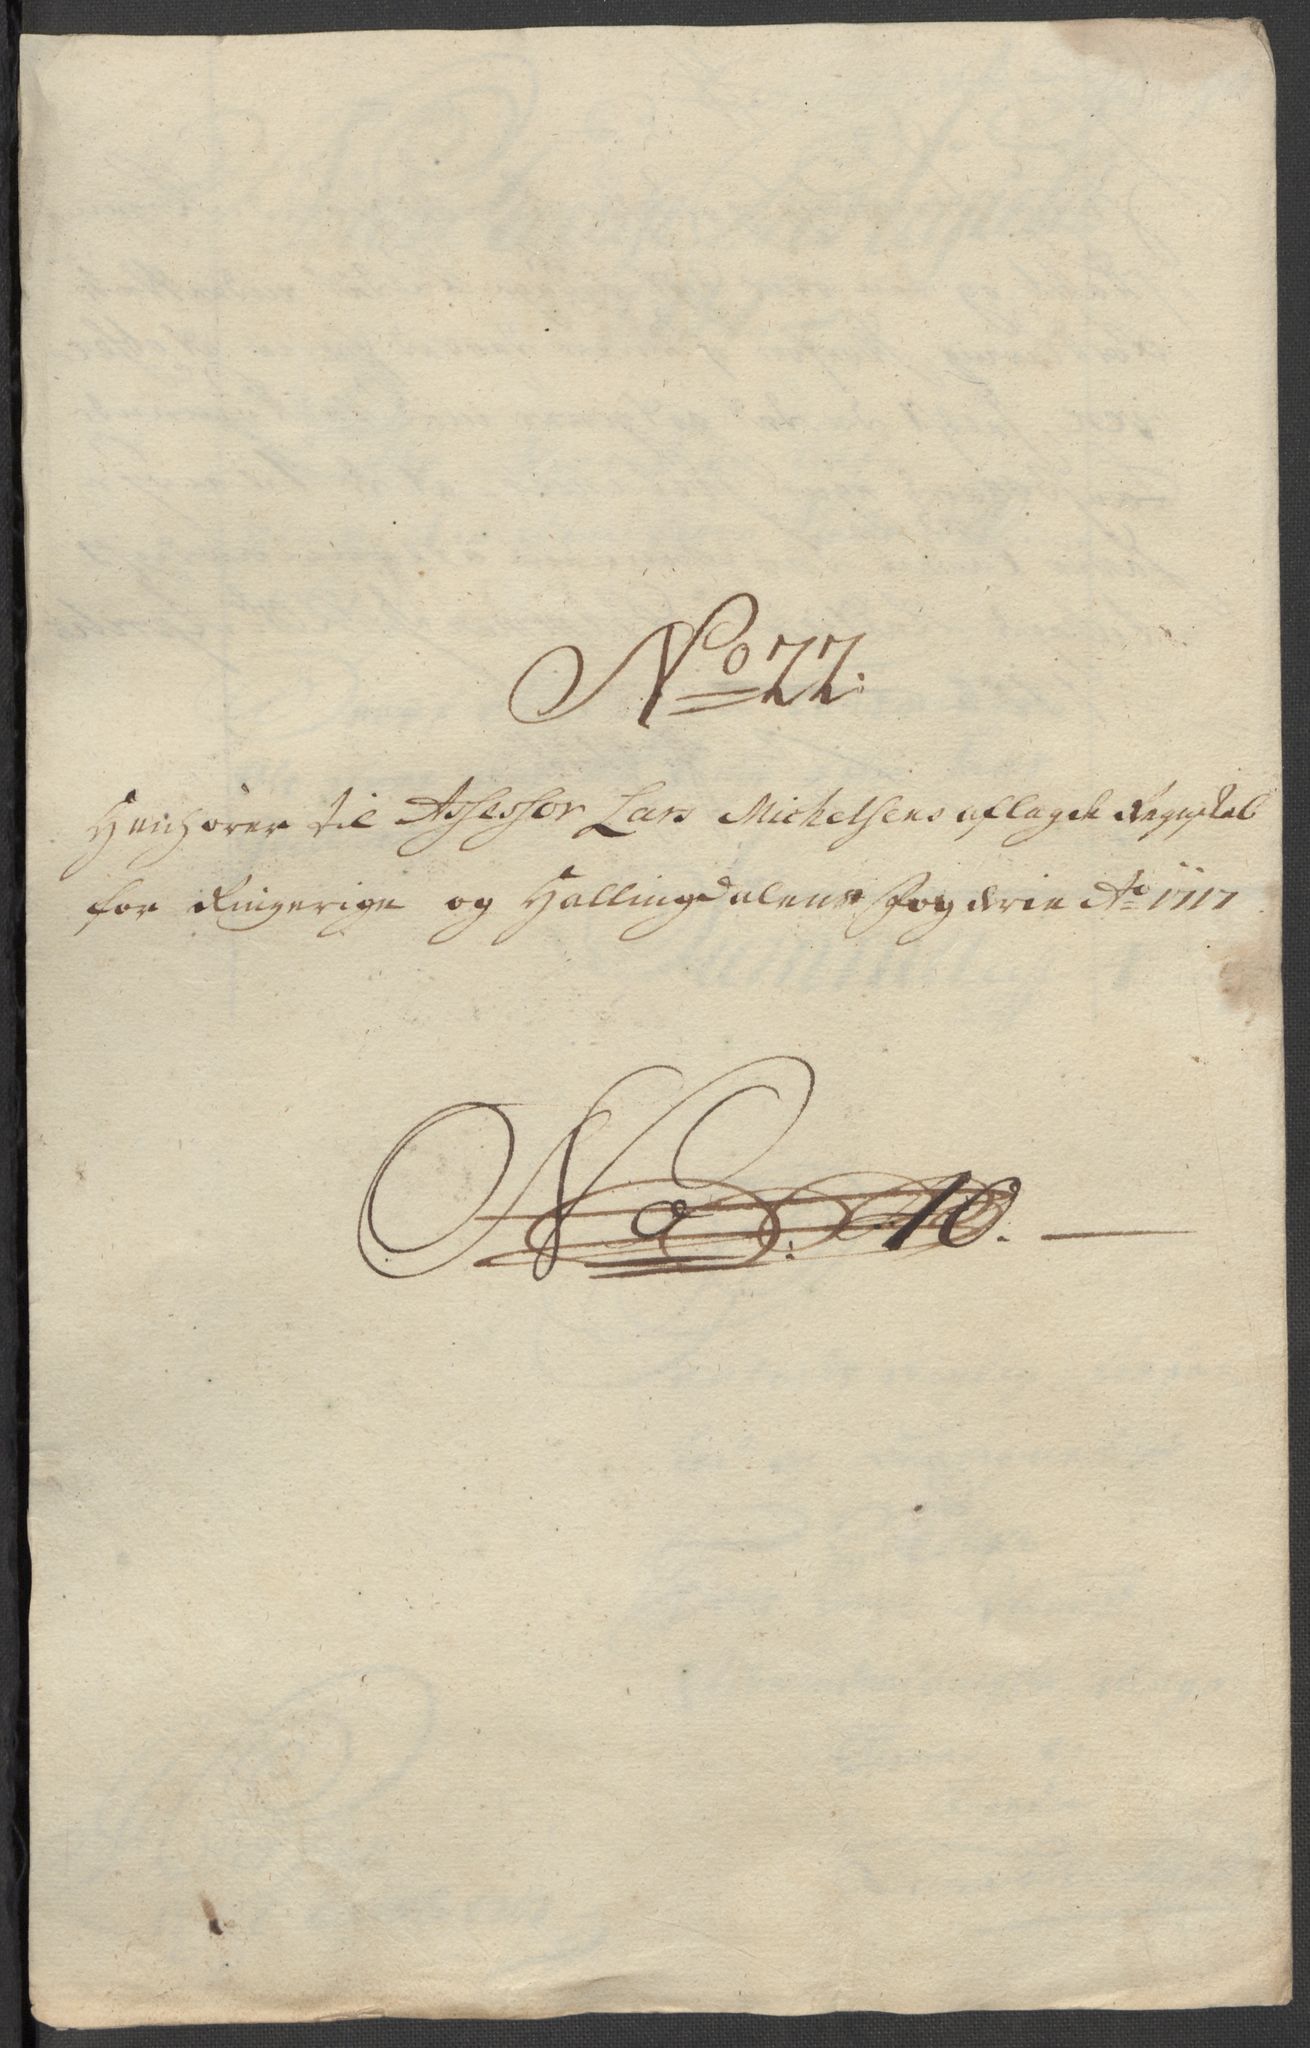 No 22.
Henhörer til Assessor Lars Michelsens aflagde Regnskab
for Ringerige og Hallingdalens Fogderie Ao 1717
No. 10.